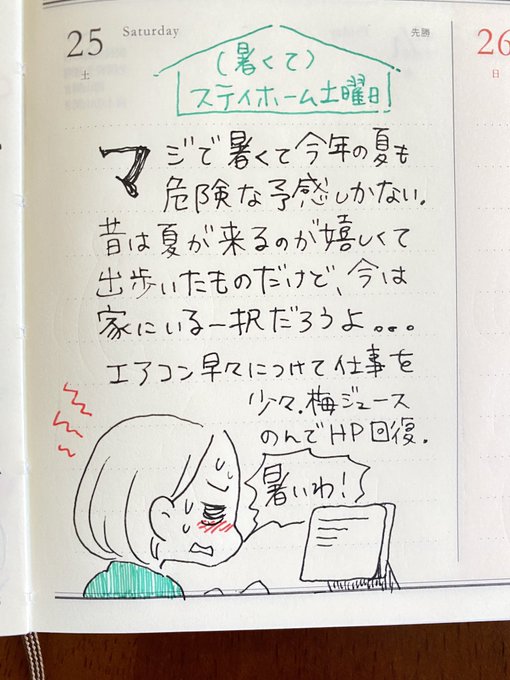 25 Saturday
土
先勝
26
日
(暑くて)
ステイホーム土曜日
マジで暑くて今年の夏も
危険な予感しかない。
昔は夏が来るのが嬉しくて
出歩いたものだけど、今は
家にいる一択だろうよ...
エアコン早々につけて仕事を
少々。梅ジュース
のんでHP回復。
暑いわ!